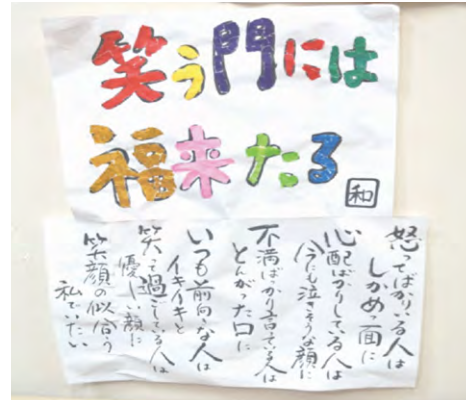 笑う門には
福来たる
和
怒ってばかりいる人は
しかめっ面に
心配ばかりしている人は
今にも泣きそうな顔に
不満ばっかり言っている人は
とんがった口に
いつも前向きな人は
イキイキと
笑って過ごしている人は
優しい顔に
笑顔の似合う
私でいたい